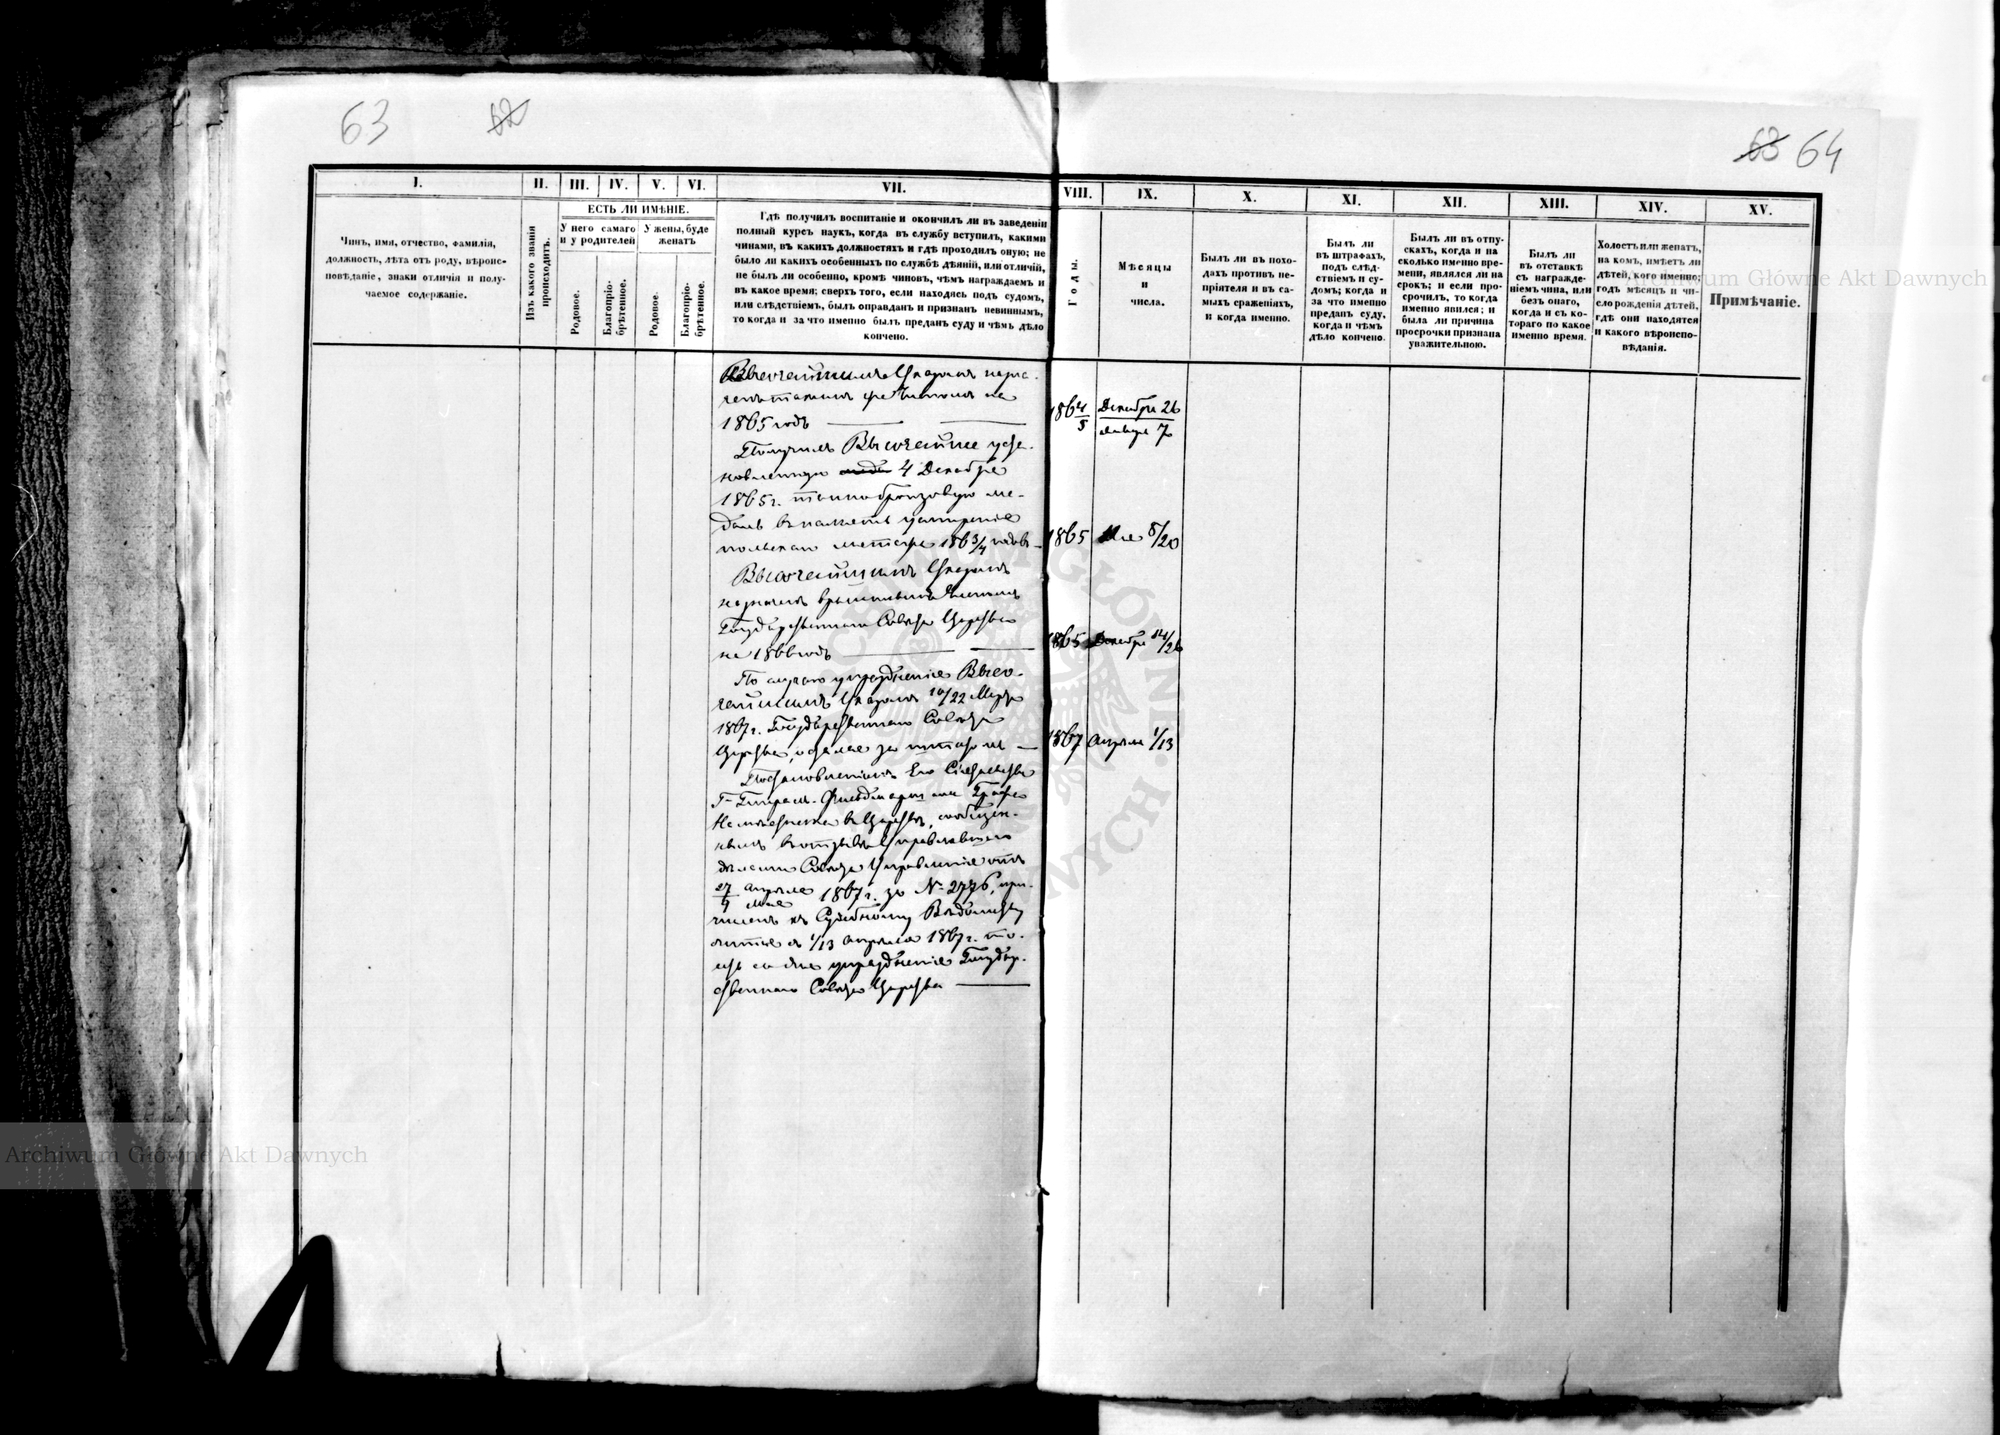 63 62
63 64
I.
II.
III.
IV.
V.
VI.
VII.
VIII.
IX.
X.
XI.
XII.
XIII.
XIV.
XV.
Чинъ, имя, отчество, фамилія,
должность, лѣта отъ роду, вѣроис-
повѣданіе, знаки отличія и полу-
чаемое содержаніе.
Изъ какого званія
происходитъ.
ЕСТЬ ЛИ ИМѢНІЕ.
У него самаго
и у родителей
У жены, буде
женатъ
Родовое.
Благопріо-
брѣтенное.
Родовое.
Благопріо-
брѣтенное.
Гдѣ получилъ воспитаніе и окончилъ ли въ заведеніи
полный курсъ наукъ, когда въ службу вступилъ, какими
чинами, въ какихъ должностяхъ и гдѣ проходилъ оную; не
было ли какихъ особенныхъ по службѣ дѣяній, или отличій,
не былъ ли особенно, кромѣ чиновъ, чѣмъ награждаемъ и
въ какое время; сверхъ того, если находясь подъ судомъ,
или слѣдствіемъ, былъ оправданъ и признанъ невиннымъ,
то когда и за что именно былъ преданъ суду и чѣмъ дѣло
кончено.
Годы.
Мѣсяцы
и
числа.
Былъ ли въ похо-
дахъ противъ не-
пріятеля и въ са-
мыхъ сраженіяхъ,
и когда именно.
Былъ ли
въ штрафахъ,
подъ слѣд-
ствіемъ и су-
домъ; когда и
за что именно
преданъ суду,
когда и чѣмъ
дѣло кончено.
Былъ ли въ отпу-
скахъ, когда и на
сколько именно вре-
мени, являлся ли на
срокъ; и если про-
срочилъ, то когда
именно явился; и
была ли причина
просрочки признана
уважительною.
Былъ ли
въ отставкѣ
съ награжде-
ніемъ чина, или
безъ онаго,
когда и съ ко-
тораго по какое
именно время.
Холостъ или женатъ,
на комъ, имѣетъ ли
дѣтей, кого именно;
годъ мѣсяцъ и чи-
сло рожденія дѣтей,
гдѣ они находятся
и какого вѣроиспо-
вѣданія.
Примѣчаніе.
Высочайшимъ Указомъ назна-
ченъ таковымъ же Членомъ на
1865 годъ
1864/5 Декабря 26
Января 7
Получилъ Высочайше уста-
новленную 4 Декабря
1865 г. темнобронзовую ме-
даль въ память усмиренія
польскаго мятежа 1863/4 годовъ
1865 Мая 8/20
Высочайшимъ Указомъ
назначенъ временнымъ Членомъ
Государственнаго Совѣта Царства
на 1866 годъ
1865 Декабря 14/26
По случаю упраздненія Высо-
чайшимъ Указомъ 10/22 Марта
1867 г. Государственнаго Совѣта
Царства, остался за штатомъ
1867 Апрѣля 1/13
Постановленіемъ Его Сіятельства
Г. Генералъ-Фельдмаршала Графа
Намѣстника въ Царствѣ, сообщен-
нымъ въ отзывѣ Управлявшаго
дѣлами Совѣта Управленія отъ
27 Апрѣля/9 Мая 1867 г. за № 2776, при-
численъ къ Судебному Вѣдомству
считая съ 1/13 Апрѣля 1867 г. то-
есть со дня упраздненія Государ-
ственнаго Совѣта Царства
Archiwum Główne Akt Dawnych
Archiwum Główne Akt Dawnych